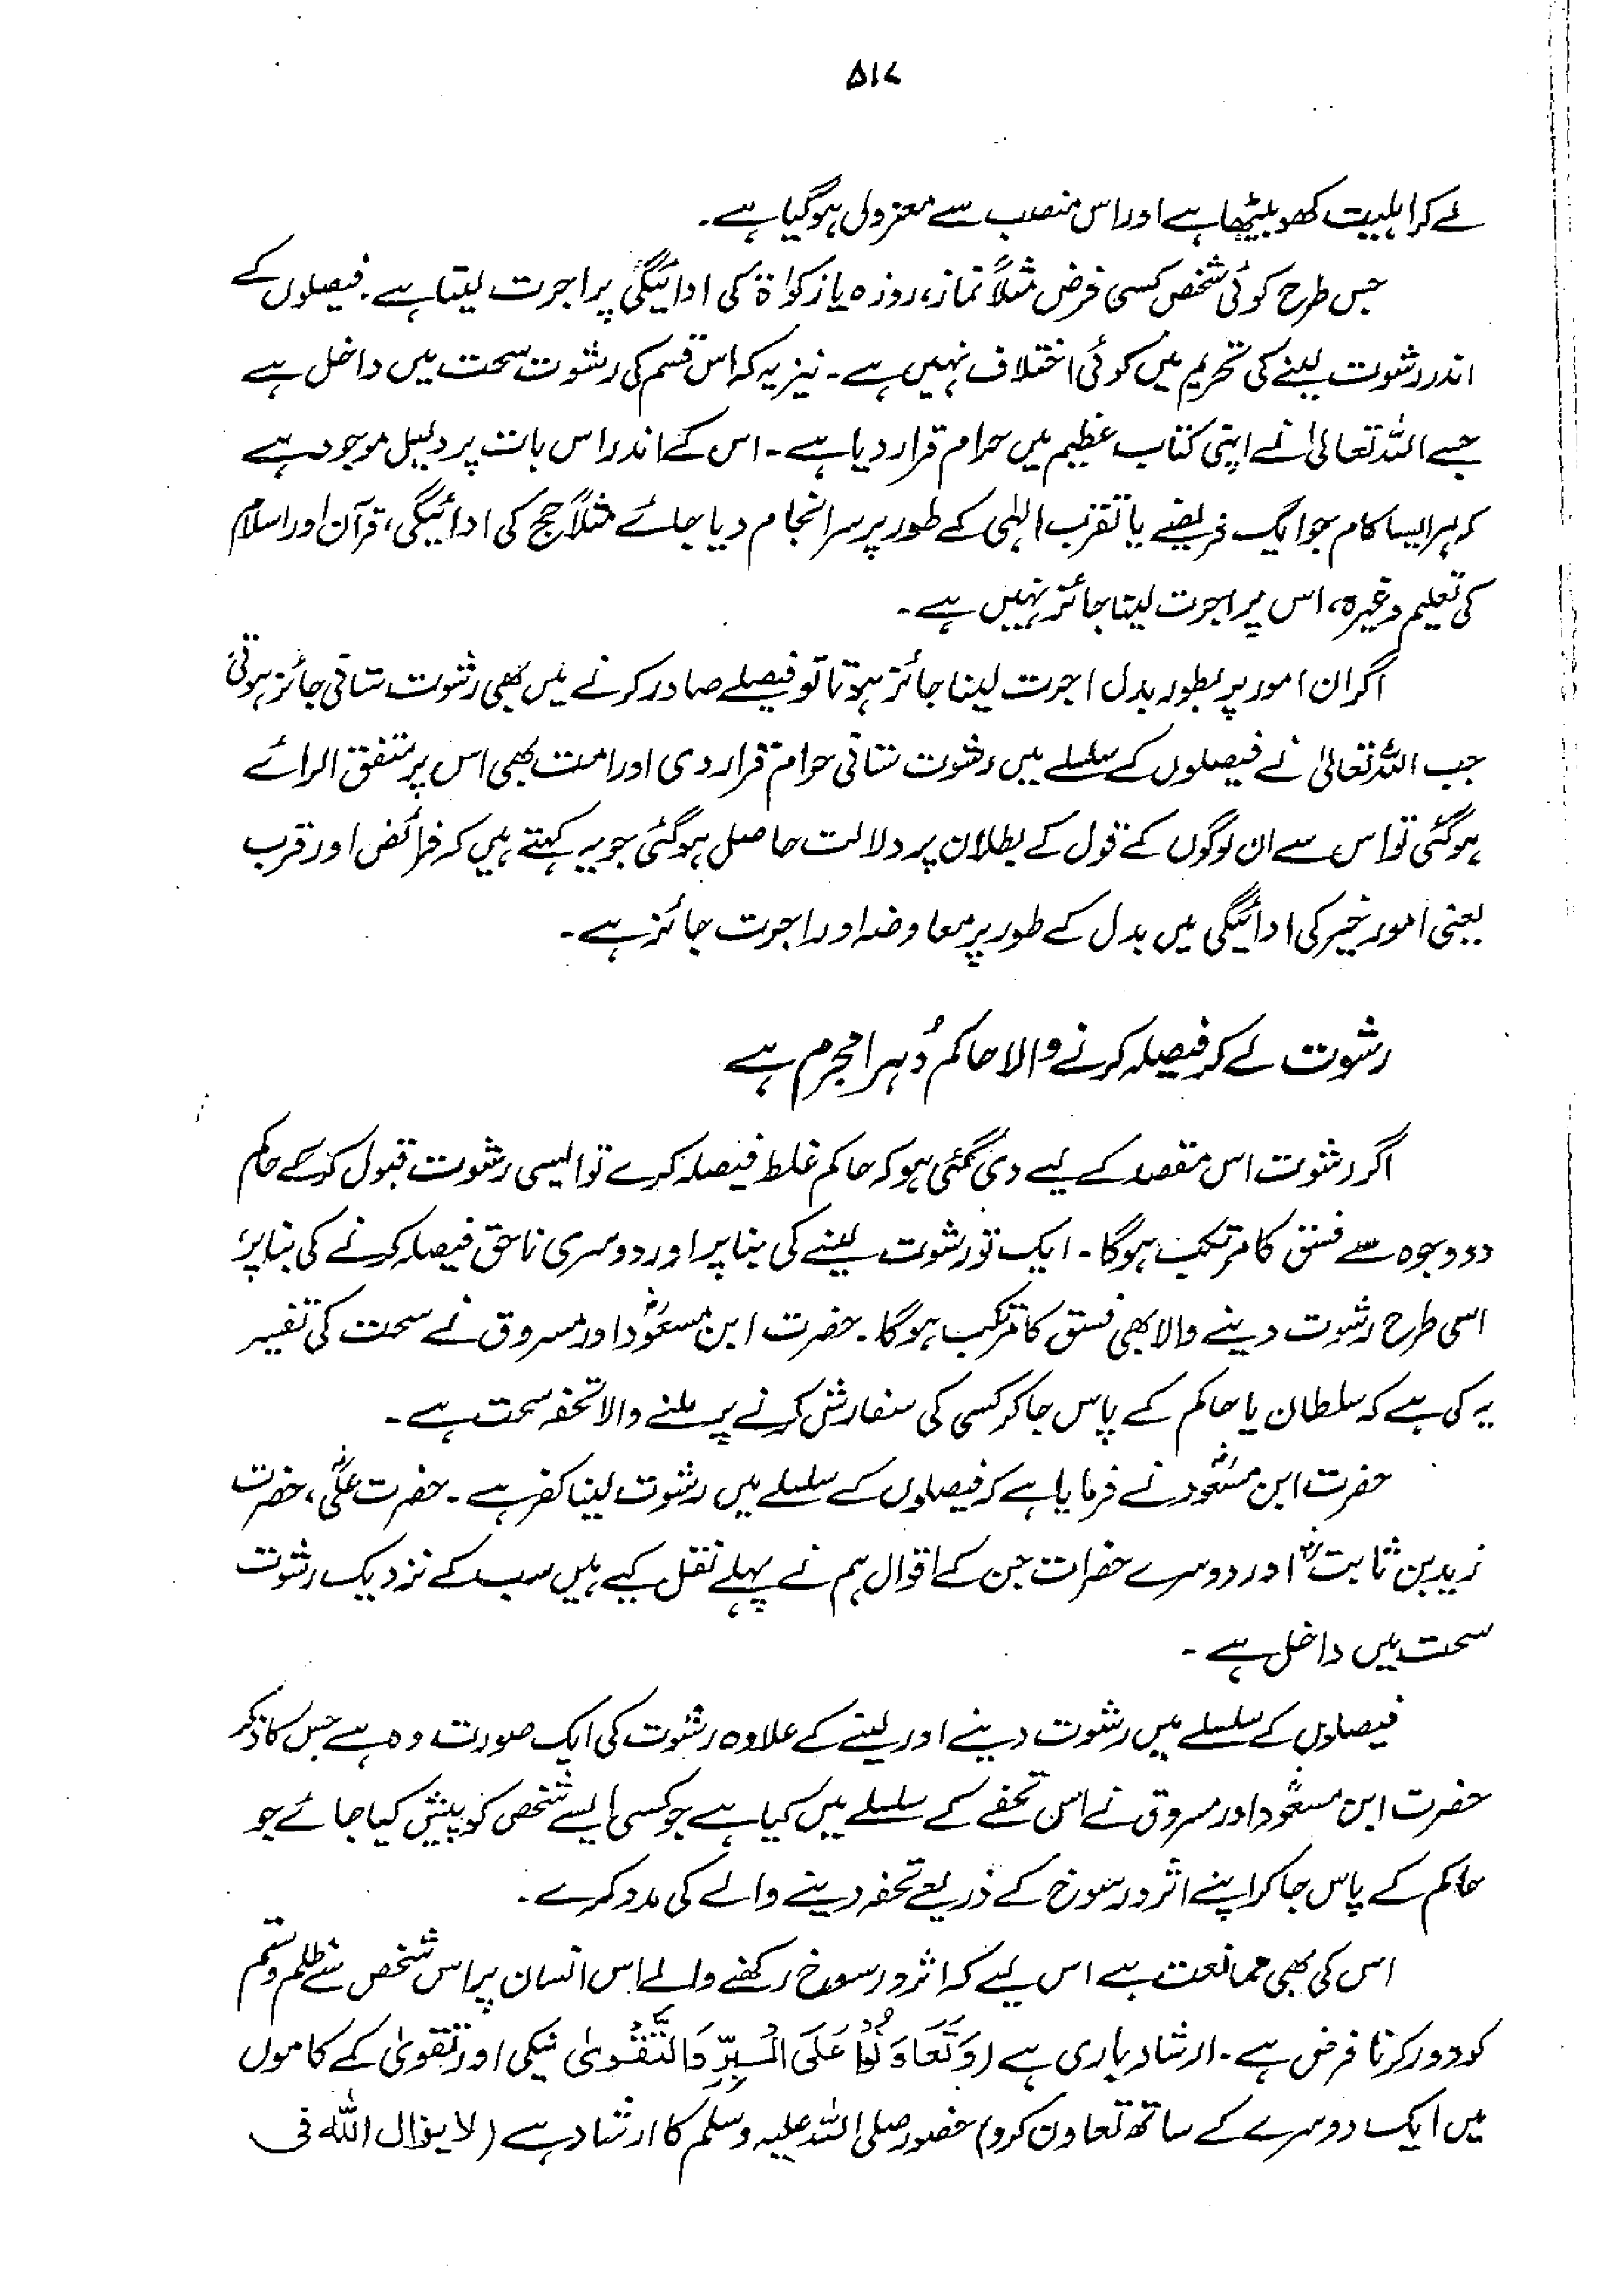 ۵۱۷
لے کر اہلیت کھو بیٹھا ہے اور اس منصب سے معزول ہو گیا ہے۔
جس طرح کوئی شخص کسی فرض مثلاً نماز، روزہ یا زکواۃ کی ادائیگی پر اجرت لیتا ہے۔ فیصلوں کے
اندر رشوت لینے کی تحریم میں کوئی اختلاف نہیں ہے۔ نیز یہ کہ اس قسم کی رشوت سحت میں داخل ہے
جسے اللہ تعالیٰ نے اپنی کتاب عظیم میں حرام قرار دیا ہے۔ اس کے اندر اس بات پر دلیل موجود ہے
کہ ہر ایسا کام جو ایک فریضے یا تقرب الہٰی کے طور پر سرانجام دیا جائے مثلاً حج کی ادائیگی، قرآن اور اسلام
کی تعلیم وغیرہ، اس پر اجرت لینا جائز نہیں ہے۔
اگر ان امور پر بطور بدل اجرت لینا جائز ہوتا تو فیصلے صادر کرنے میں بھی رشوت ستانی جائز ہوتی
جب اللہ تعالیٰ نے فیصلوں کے سلسلے میں رشوت ستانی حرام قرار دی اور امت بھی اس پر متفق الرائے
ہو گئی تو اس سے ان لوگوں کے قول کے بطلان پر دلالت حاصل ہو گئی جو یہ کہتے ہیں کہ فرائض اور قرب
یعنی امور خیر کی ادائیگی میں بدل کے طور پر معاوضہ اور اجرت جائز ہے۔
رشوت لے کر فیصلہ کرنے والا حاکم دُہرا مجرم ہے
اگر رشوت اس مقصد کے لیے دی گئی ہو کہ حاکم غلط فیصلہ کرے تو ایسی رشوت قبول کرکے حاکم
دو وجوہ سے فسق کا مرتکب ہوگا۔ ایک تو رشوت لینے کی بنا پر اور دوسری ناحق فیصلہ کرنے کی بنا پر،
اسی طرح رشوت دینے والا بھی فسق کا مرتکب ہوگا۔ حضرت ابن مسعودؓ اور مسروق نے سحت کی تفسیر
یہ کی ہے کہ سلطان یا حاکم کے پاس جا کر کسی کی سفارش کرنے پر ملنے والا تحفہ سحت ہے۔
حضرت ابن مسعودؓ نے فرمایا ہے کہ فیصلوں کے سلسلے میں رشوت لینا کفر ہے۔ حضرت علیؓ، حضرت
زید بن ثابتؓ اور دوسرے حضرات جن کے اقوال ہم نے پہلے نقل کیے ہیں سب کے نزدیک رشوت
سحت میں داخل ہے۔
فیصلوں کے سلسلے میں رشوت دینے اور لینے کے علاوہ رشوت کی ایک صورت وہ ہے جس کا ذکر
حضرت ابن مسعودؓ اور مسروق نے اس تحفے کے سلسلے میں کیا ہے جو کسی ایسے شخص کو پیش کیا جائے جو
حاکم کے پاس جا کر اپنے اثر و رسوخ کے ذریعے تحفہ دینے والے کی مدد کرے۔
اس کی بھی ممانعت ہے اس لیے کہ اثر و رسوخ رکھنے والے اس انسان پر اس شخص سے ظلم و ستم
کو دور کرنا فرض ہے۔ ارشاد باری ہے (وَتَعَاوَنُوْا عَلَى الْبِرِّ وَالتَّقْوىٰ نیکی اور تقویٰ کے کاموں
میں ایک دوسرے کے ساتھ تعاون کرو) حضور صلی اللہ علیہ وسلم کا ارشاد ہے (لا يزال الله فى